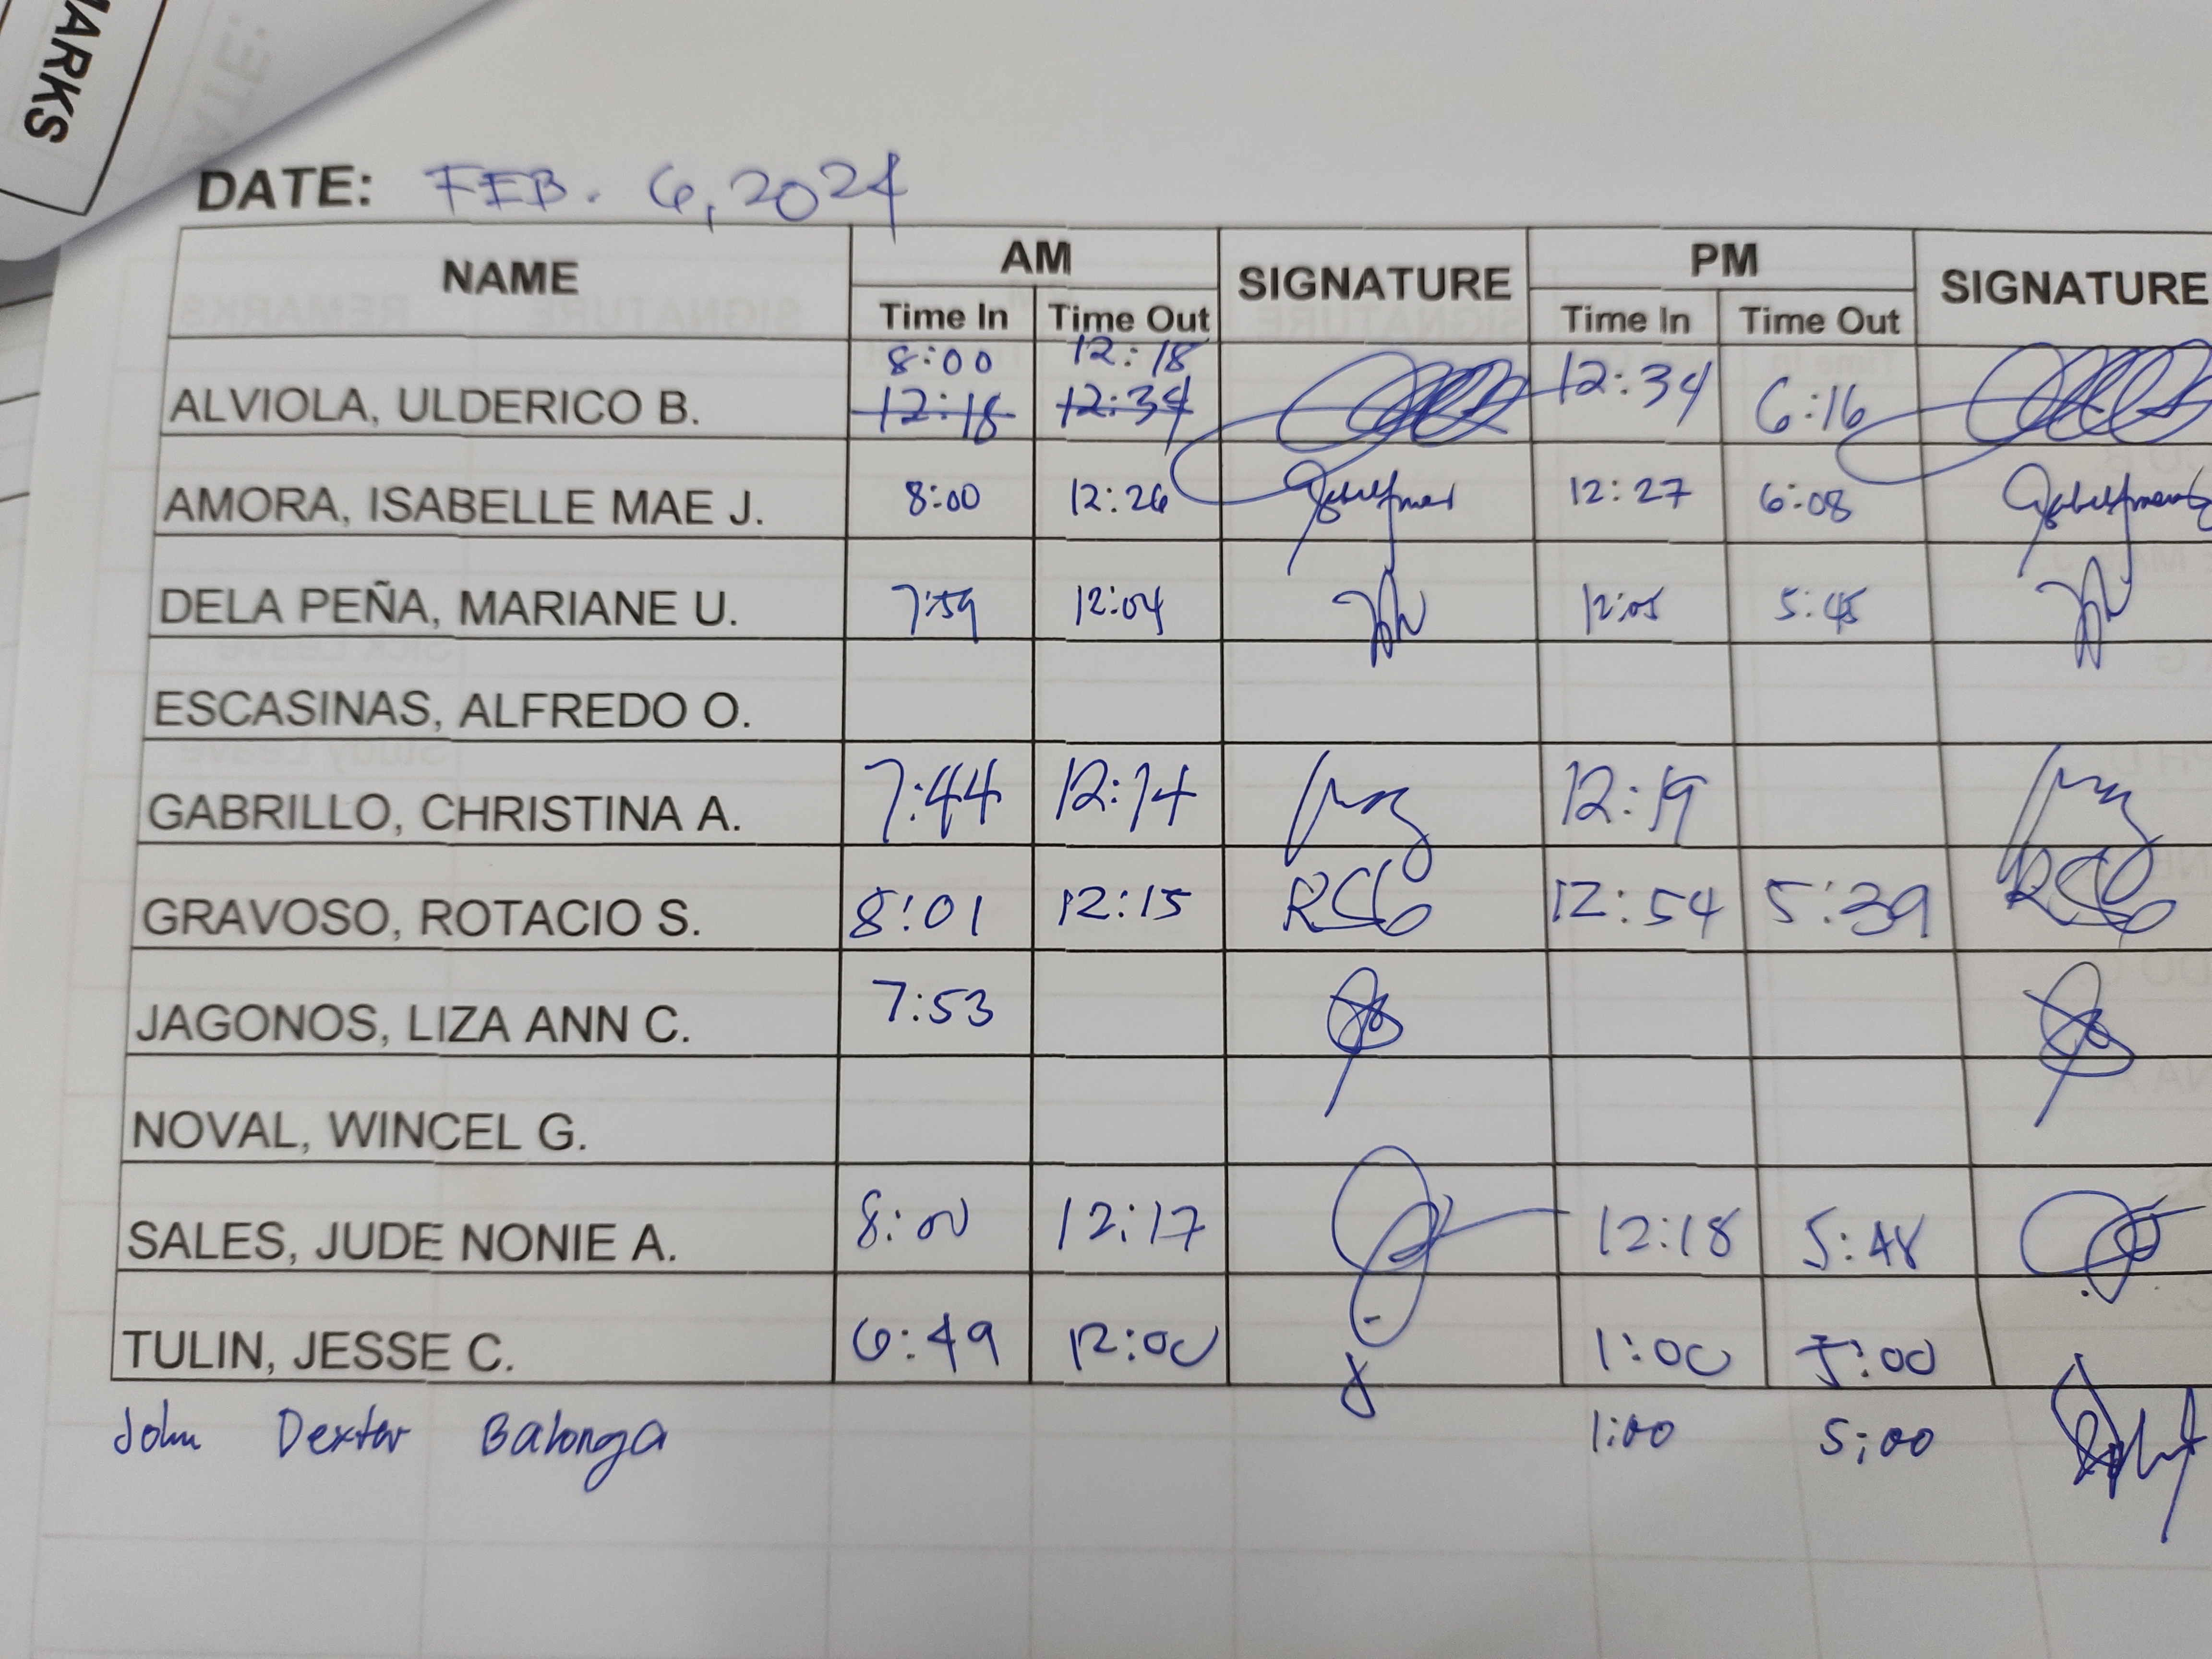 MARKS
DATE: FEB. 6, 2024
NAME AM SIGNATURE PM SIGNATURE
Time In Time Out Time In Time Out
8:00 12:18
ALVIOLA, ULDERICO B. 12:18 12:34 12:34 6:16
AMORA, ISABELLE MAE J. 8:00 12:26 12:27 6:08
DELA PEÑA, MARIANE U. 7:59 12:04 12:05 5:45
ESCASINAS, ALFREDO O.
GABRILLO, CHRISTINA A. 7:44 12:14 12:19
GRAVOSO, ROTACIO S. 8:01 12:15 RSG 12:54 5:39 RSG
JAGONOS, LIZA ANN C. 7:53
NOVAL, WINCEL G.
SALES, JUDE NONIE A. 8:00 12:17 12:18 5:48
TULIN, JESSE C. 6:49 12:00 1:00 5:00
John Dexter Balonga 1:00 5:00